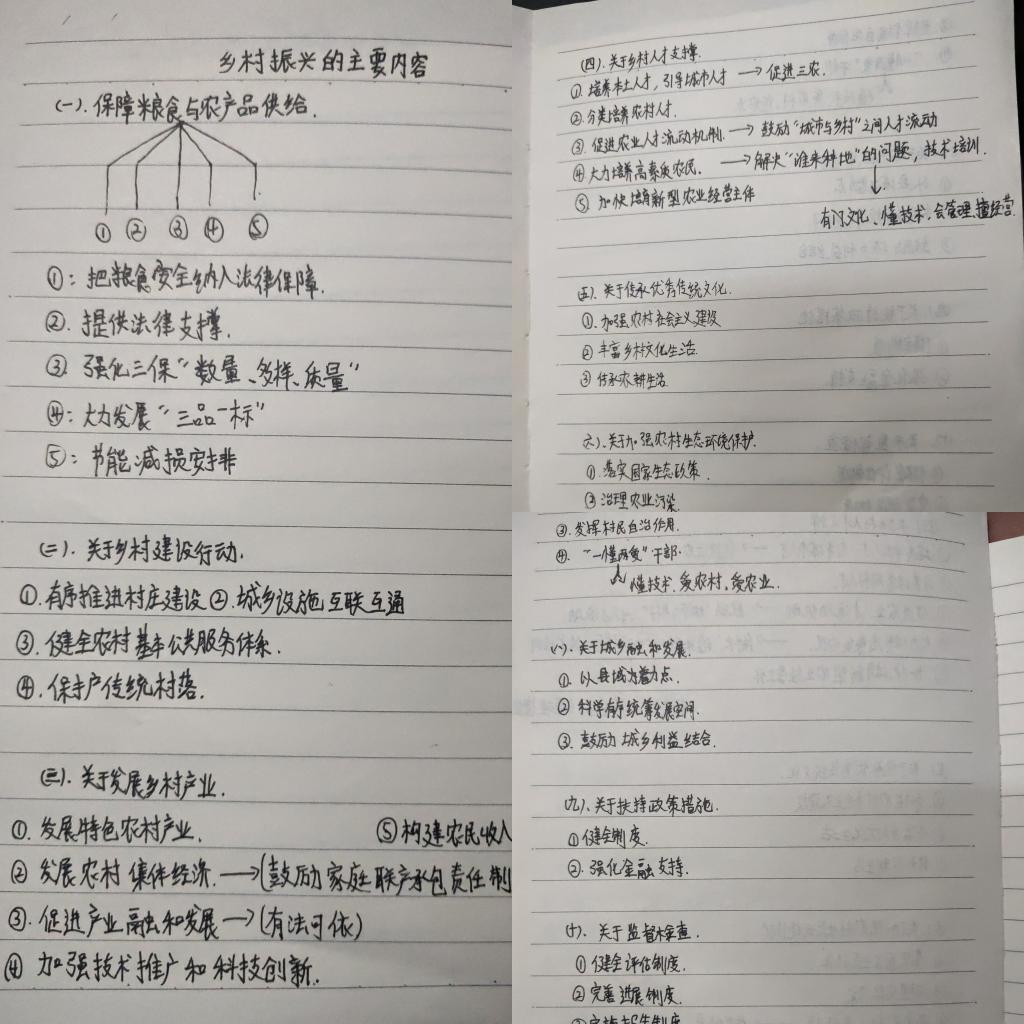 乡村振兴的主要内容
(一).保障粮食与农产品供给.
① ② ③ ④ ⑤
①:把粮食安全纳入法律保障.
②.提供法律支撑.
③ 强化三保“数量、多样、质量”
④:大力发展“三品一标”
⑤:节能减损安排
(二).关于乡村建设行动.
①.有序推进村庄建设②.城乡设施互联互通
③.健全农村基本公共服务体系.
④.保护传统村落.
(三).关于发展乡村产业.
①.发展特色农村产业. ⑤构建农民收入
② 发展农村集体经济.→(鼓励家庭联产承包责任制
③.促进产业融和发展→(有法可依)
④ 加强技术推广和科技创新.
(四).关于乡村人才支撑.
①.培养本土人才,引导城市人才→促进三农.
②.分类培养农村人才.
③.促进农业人才流动机制.→鼓励“城市与乡村”之间人才流动
④大力培养高素质农民. →解决“谁来种地”的问题,技术培训.
⑤ 加快培育新型农业经营主体
有文化、懂技术,会管理,擅经营.
五).关于传承优秀传统文化.
①.加强农村社会主义建设
②丰富乡村文化生活.
③传承农耕生活.
六).关于加强农村生态环境保护.
①.落实国家生态政策.
②治理农业污染.
③.发挥村民自治作用.
④.“一懂两爱”干部.
懂技术.爱农村,爱农业.
(八).关于城乡融和发展.
①.以县域为着力点.
②科学有序统筹发展空间.
③.鼓励城乡利益结合.
(九).关于扶持政策措施.
①健全制度.
②.强化金融支持.
(十).关于监督检查.
①健全评估制度.
②完善进展制度.